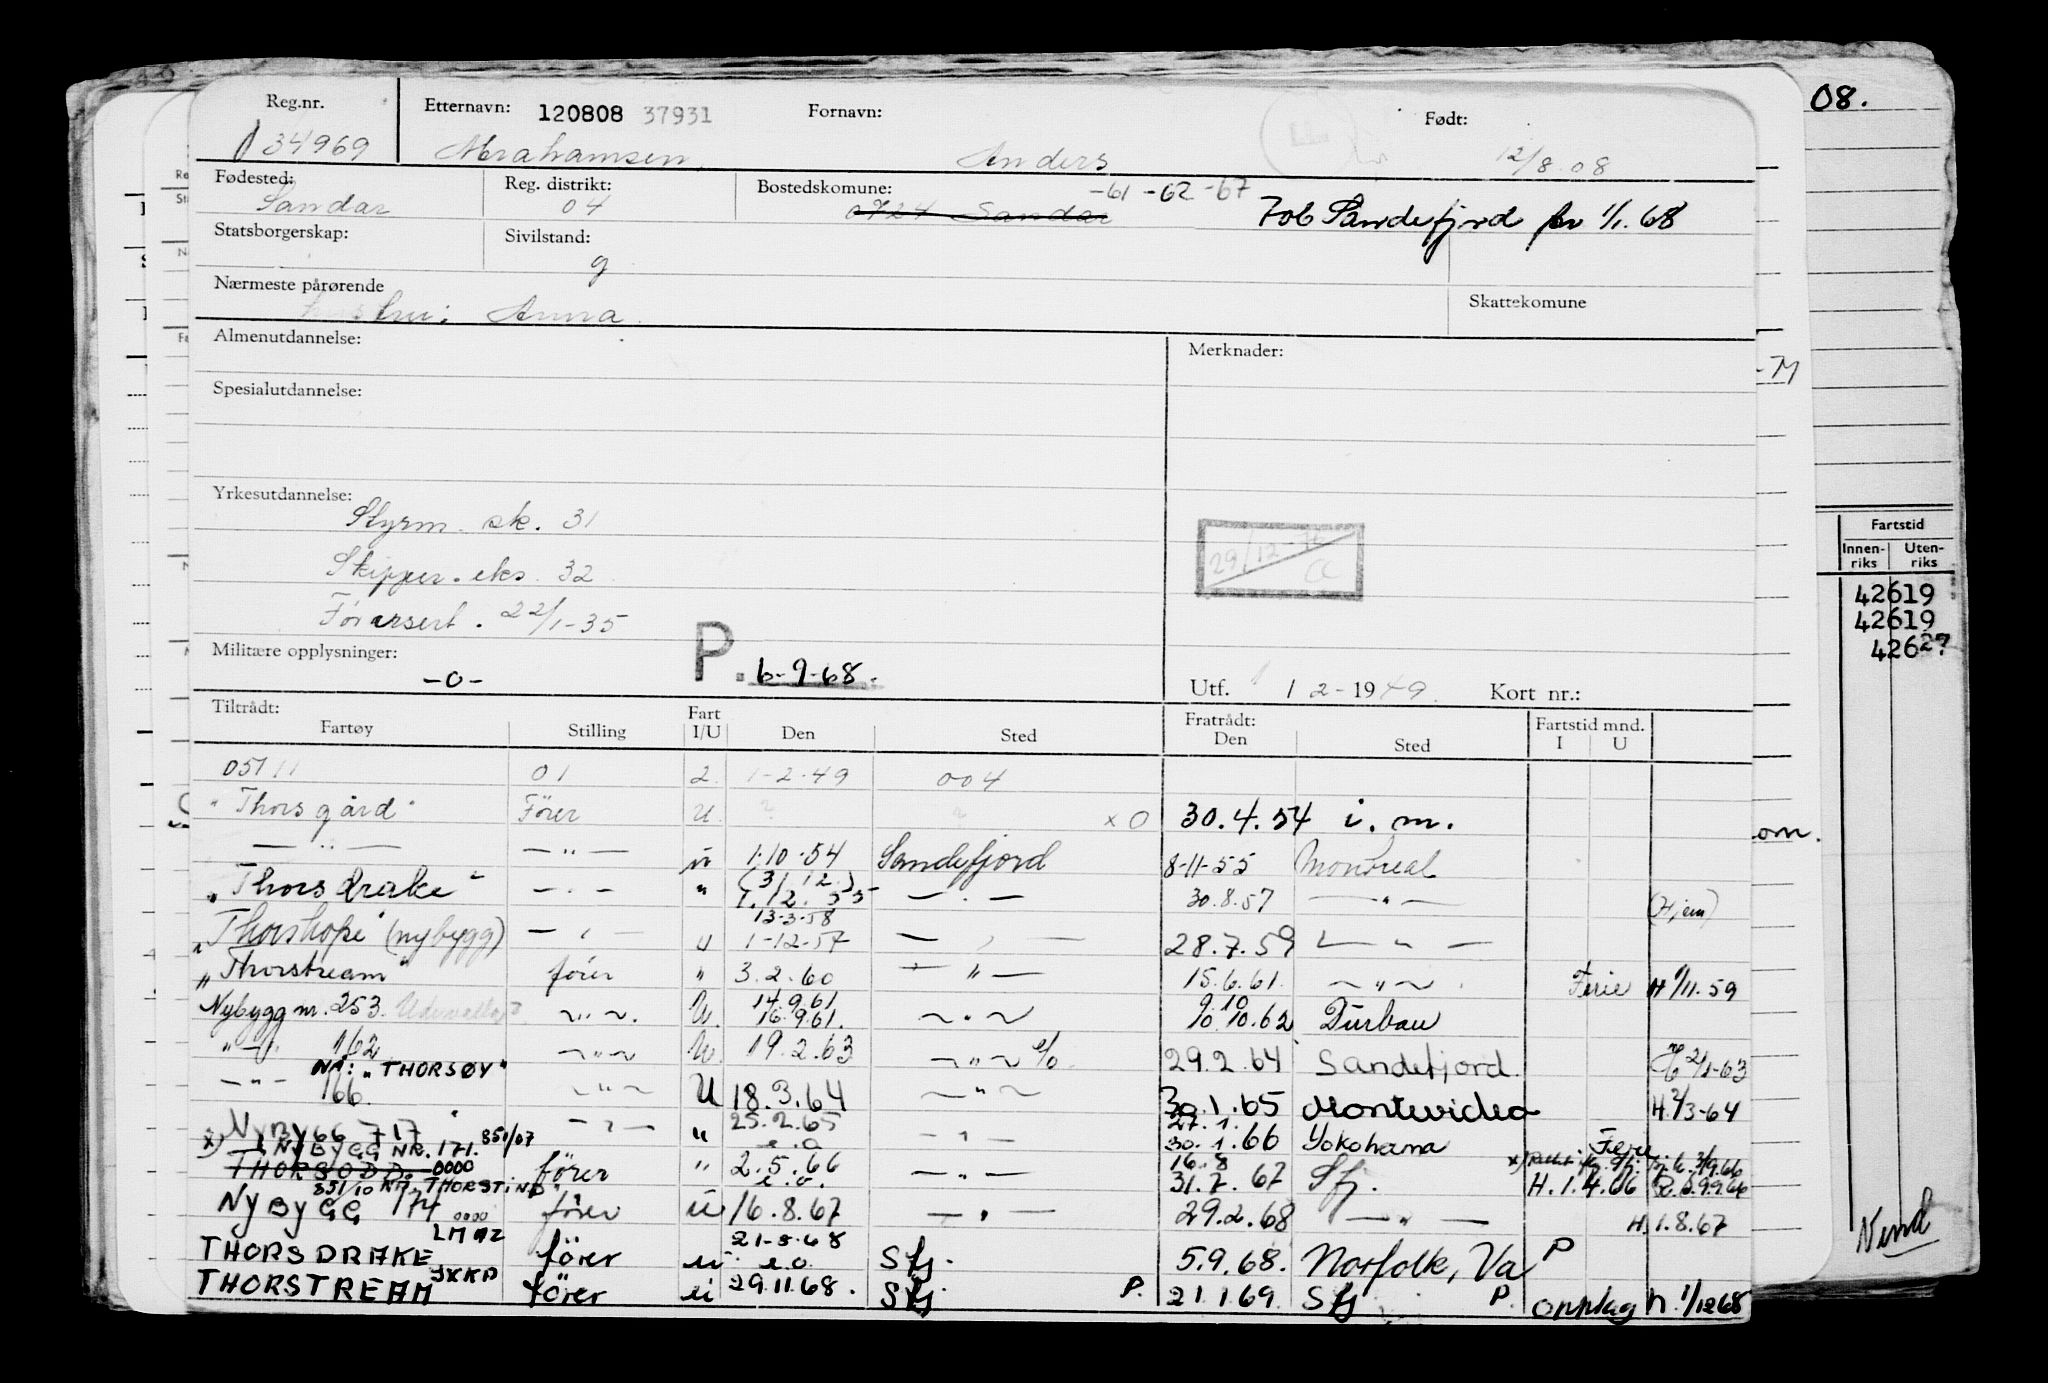 08.
Reg.nr. Etternavn: 120808 37931 Fornavn: Født:
34969 Abrahamsen Anders 12/8 08
Fødested: Reg. distrikt: Bostedskomune: -61 -62 -67
Sandar 04 0724 Sandar 706 Sandefjord pr 1/1. 68
Statsborgerskap: Sivilstand:
g
Nærmeste pårørende Skattekomune
Anna
Almenutdannelse: Merknader:
Spesialutdannelse:
Yrkesutdannelse:
Styrm. sk. 31
Skipper. eks. 32
Førersert. 22/1-35
29/12-
Militære opplysninger:
-0- P. 6-9-68.
Utf. 1 2-1949. Kort nr.:
Tiltrådt: Fratrådt: Fartstid mnd.
Fartøy Stilling Fart I/U Den Sted Den Sted I U
051 01 2. 1-2-49 004
"Thorsgård" Fører U. x O 30.4.54 i. m.
— " — — " — u 1.10-54 Sandefjord 8-11-55 Montreal
"Thorsdrake" — " — " (3/12) 1.12.55 — " — 30.8.57 — " — (Hjem)
13-3-58
"Thorshope" (nybygg) — " — U 1-12-57 — " — 28.7.59 — " —
"Thorstream" fører " 3.2.60 — " — 15.6.61. — " — Ferie H 9/11.59
14.9.61 9.10
Nybygg nr. 253. Uddevalla — " —. U. 16.9.61. — " — 10.10.62 Durban
" — " 162 — " — U. 19.2.63 — " — 29.2.64 Sandefjord. 2/1-63
NÅ: "THORSØY"
— " — 166. — " — U 18.3.64 — " — 30.1.65 Montevideo H. 2/3-64
25.2.65 27.1.
NYBYGG 717 — " — " e.o — " — 30.1.66 Yokohama Ferie
x) NYBYGG NR. 171. 851/07
THORSODD. 0000 fører " 2.5.66 — " — 16.8
851/10 NÅ. THORSTIND" e.o. 31.7.67 Sfj. H. 1.4.66
NYBYGG 174 0000 fører u 16.8.67 — " — 29.2.68 — " — H. 1.8.67
LMAZ 21-3-68
THORSDRAKE fører u e.o. Sfj. 5.9.68. Norfolk, Va P
JXKP
THORSTREAM fører u 29.11.68. Sfj P. 21.1.69. Sfj P. opplag H. 1/12 68
-M
om.
Fartstid
Innen-riks Uten-riks
42619
42619
42627
Vend